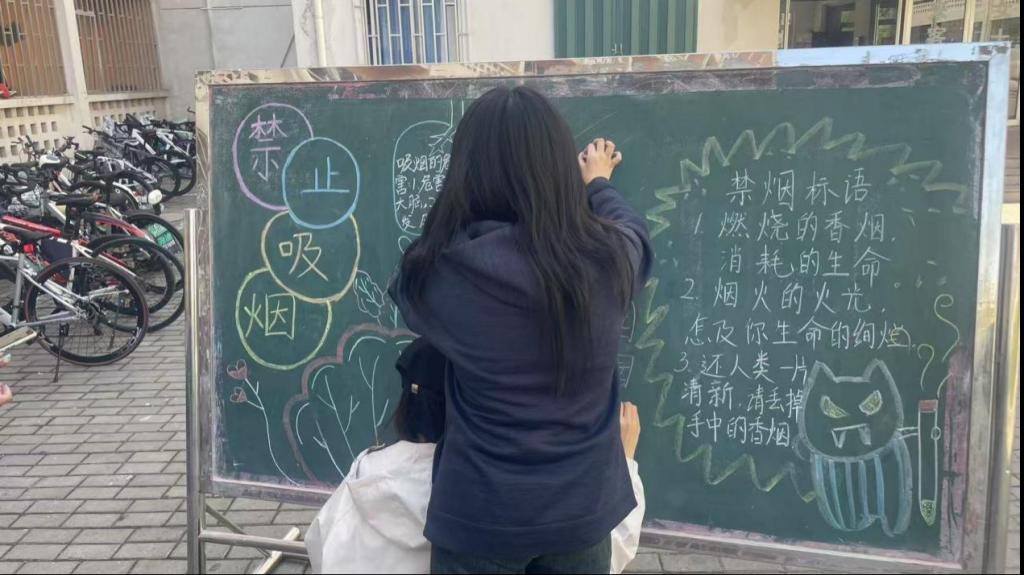 禁
止
吸
烟
吸烟的危
害1.危害
大脑
禁烟标语
1.燃烧的香烟,
消耗的生命
2.烟火的火光,
怎及你生命的绚烂
3.还人类一片
清新,请丢掉
手中的香烟